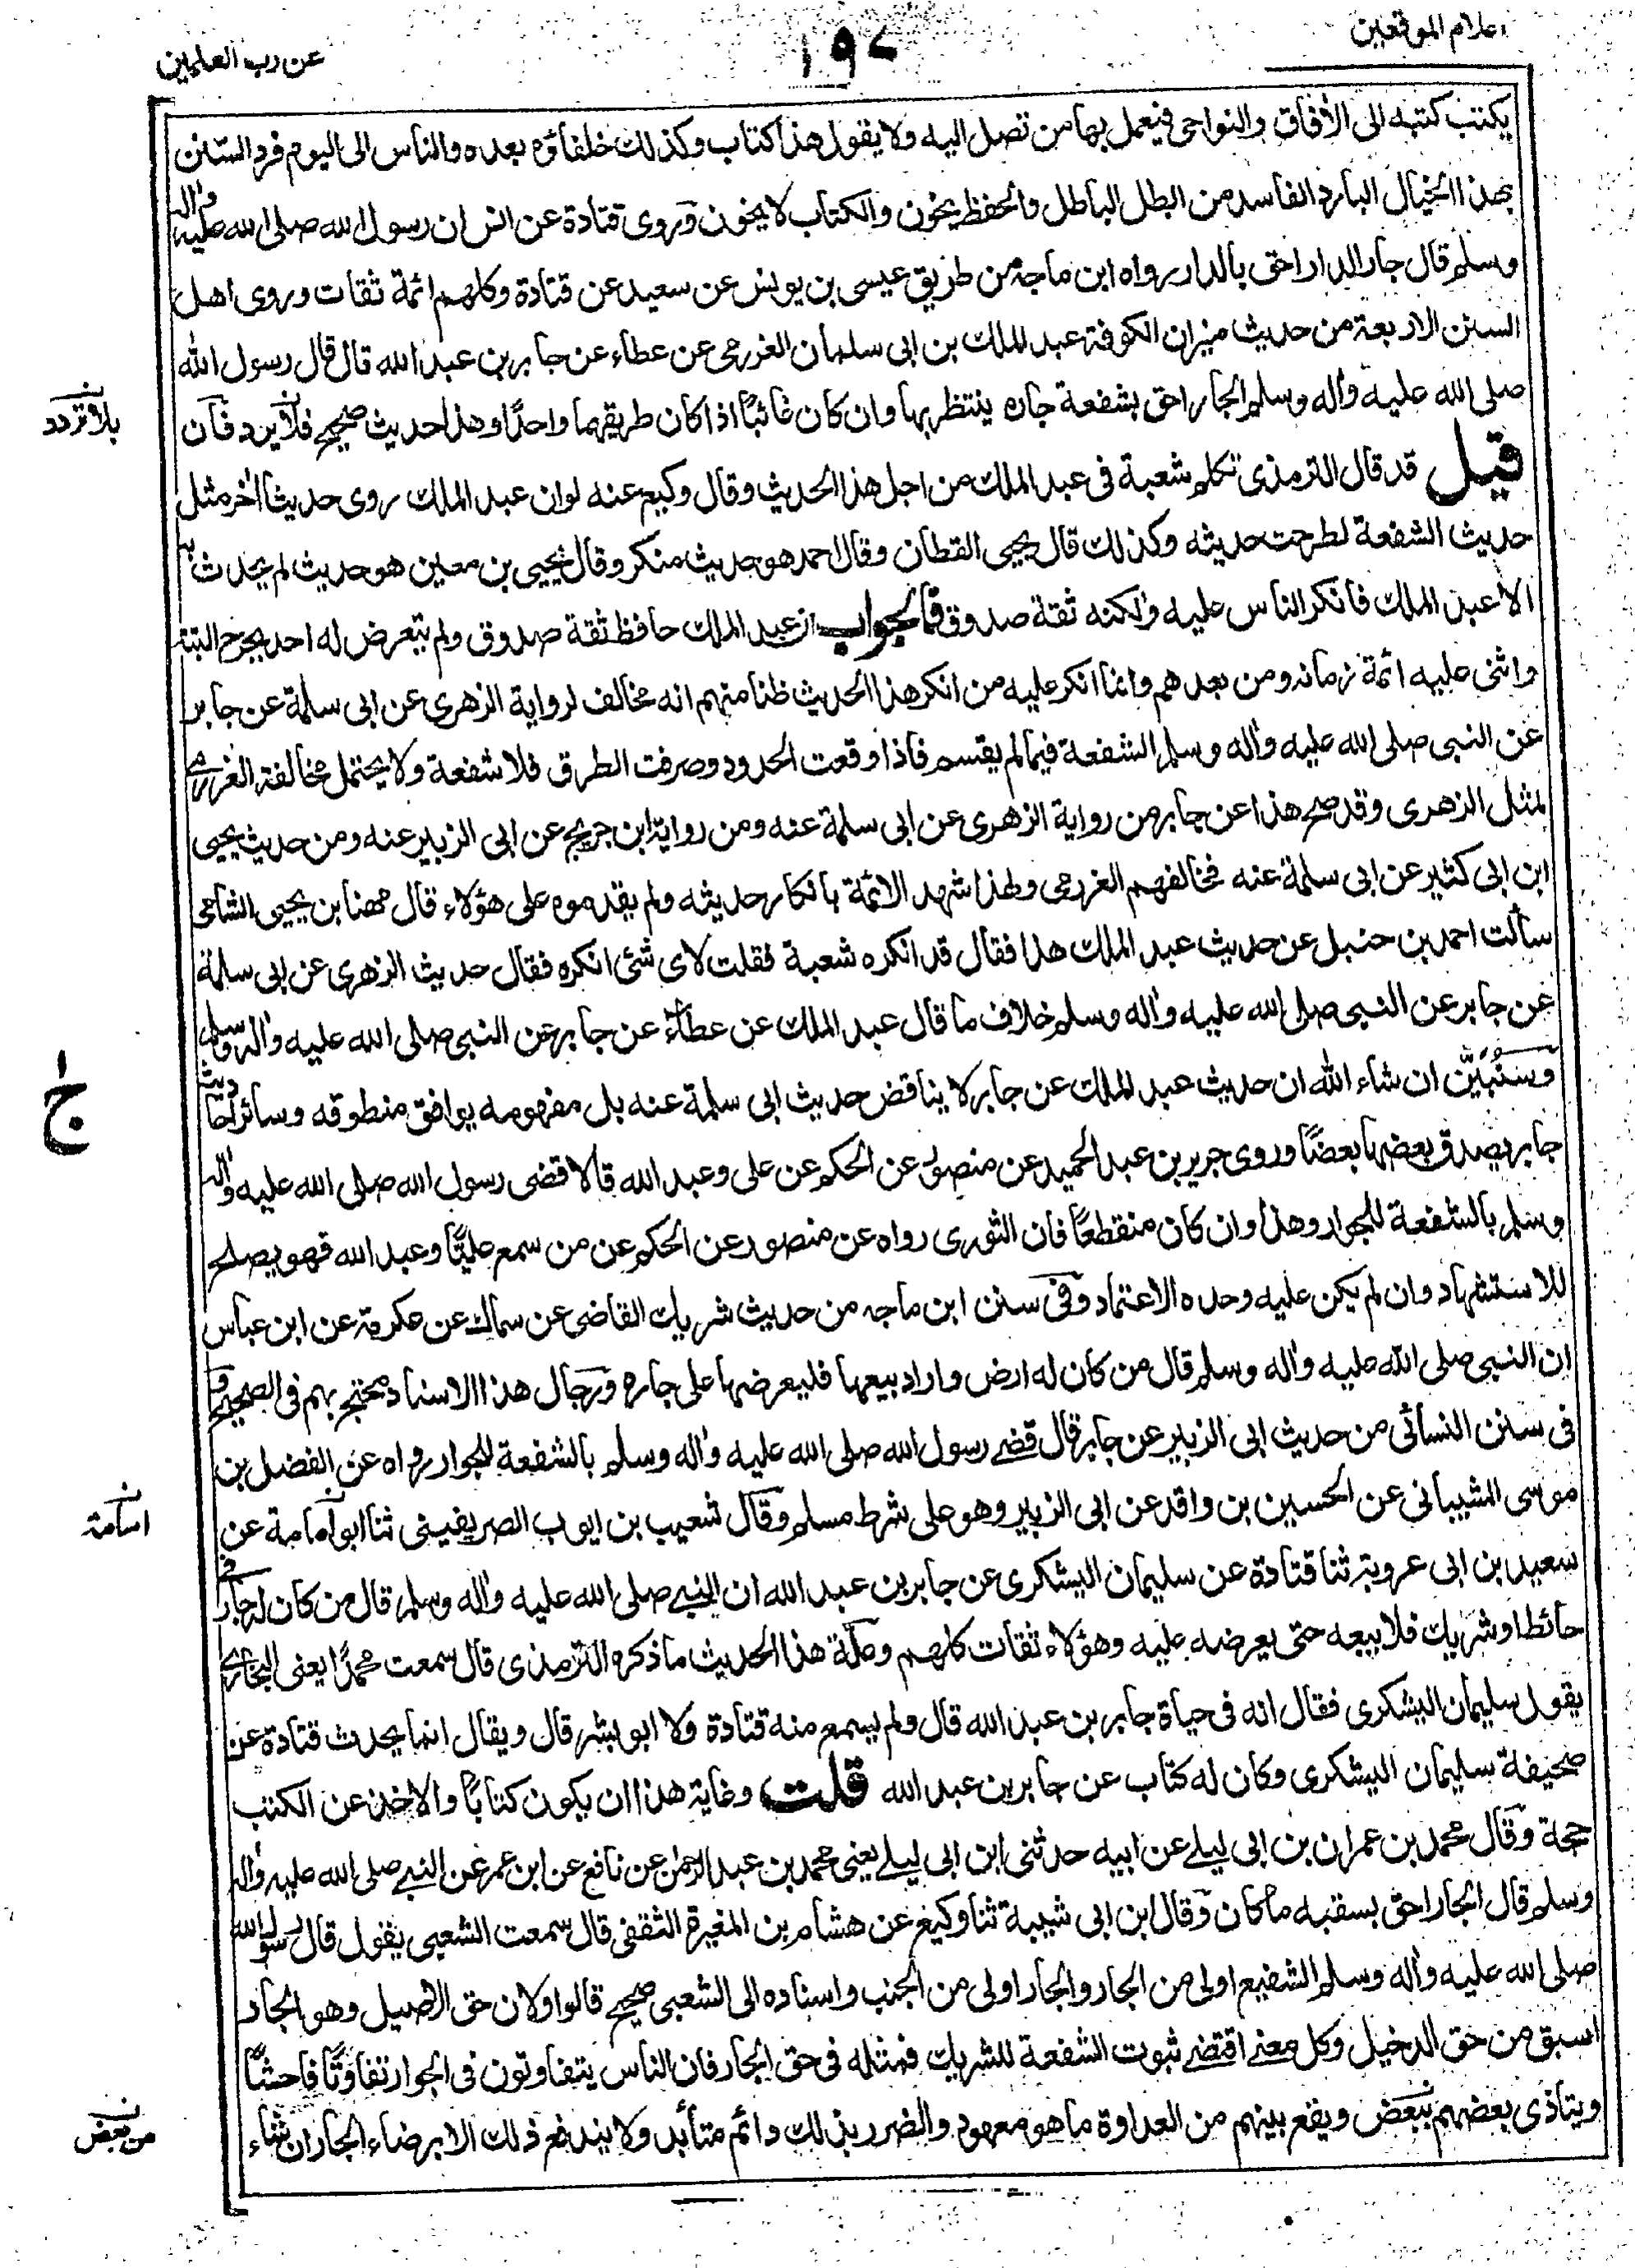 اعلام الموقعين
١٩٧
عن رب العلمين
يكتب كتبه الى الأفاق والنواحى فيعمل بها من تصل اليه ولا يقول هذا كتاب وكذلك خلفاؤه بعده والناس الى اليوم فرد السنن
بهذا الخيال البارد الفاسد من ابطل الباطل والحفظ يخون والكتاب لا يخون وروى قتادة عن انس ان رسول الله صلى الله عليه واله
وسلم قال جار الدار احق بالدار رواه ابن ماجة من طريق عيسى بن يونس عن سعيد عن قتادة وكلهم ائمة ثقات وروى اهل
السنن الاربعة من حديث ميزان الكوفة عبد الملك بن ابى سليمان العرزمى عن عطاء عن جابر بن عبد الله قال قال رسول الله
صلى الله عليه واله وسلم الجار احق بشفعة جاره ينتظر بها وان كان غائبًا اذا كان طريقهما واحدًا وهذا حديث صحيح فلا يرد فان
بلا تردد
قيل قد قال الترمذى تكلم شعبة فى عبد الملك من اجل هذا الحديث وقال وكيع عنه لو ان عبد الملك روى حديثا اخر مثل
حديث الشفعة لطرحت حديثه وكذلك قال يحيى القطان وقال احمد هو حديث منكر وقال يحيى بن معين هو حديث لم يحدث به
الا عبد الملك فانكر الناس عليه ولكنه ثقة صدوق فالجواب ان عبد الملك حافظ ثقة صدوق ولم يتعرض له احد بجرح البتة
واثنى عليه ائمة زمانه ومن بعدهم وانما انكر عليه من انكر هذا الحديث ظنا منهم انه مخالف لرواية الزهرى عن ابى سلمة عن جابر
عن النبى صلى الله عليه واله وسلم الشفعة فيما لم يقسم فاذا وقعت الحدود وصرفت الطرق فلا شفعة ولا يحتمل مخالفة العرزمى
لمثل الزهرى وقد صح هذا عن جابر من رواية الزهرى عن ابى سلمة عنه ومن رواية ابن جريج عن ابى الزبير عنه ومن حديث يحيى
ابن ابى كثير عن ابى سلمة عنه فخالفهم العرزمى ولهذا شهد الائمة بانكار حديثه ولم يقدموه على هؤلاء قال مهنا بن يحيى الشامى
سألت احمد بن حنبل عن حديث عبد الملك هذا فقال قد انكره شعبة فقلت لاى شئ انكره فقال حديث الزهرى عن ابى سلمة
عن جابر عن النبى صلى الله عليه واله وسلم خلاف ما قال عبد الملك عن عطاء عن جابر عن النبى صلى الله عليه واله وسلم
وسنبين ان شاء الله ان حديث عبد الملك عن جابر لا يناقض حديث ابى سلمة عنه بل مفهومه يوافق منطوقه وسائر احاديث
ج ١
جابر يصدق بعضها بعضًا وروى جرير بن عبد الحميد عن منصور عن الحكم عن على وعبد الله قالا قضى رسول الله صلى الله عليه واله
وسلم بالشفعة للجوار وهذا وان كان منقطعًا فان الثورى رواه عن منصور عن الحكم عن من سمع عليًّا وعبد الله فهو يصلح
للاستشهاد وان لم يكن عليه وحده الاعتماد وفى سنن ابن ماجه من حديث شريك القاضى عن سماك عن عكرمة عن ابن عباس
ان النبى صلى الله عليه واله وسلم قال من كان له ارض واراد بيعها فليعرضها على جاره ورجال هذا الاسناد محتج بهم فى الصحيح و
فى سنن النسائى من حديث ابى الزبير عن جابر قال قضى رسول الله صلى الله عليه واله وسلم بالشفعة للجوار رواه عن الفضل بن
موسى الشيبانى عن الحسين بن واقد عن ابى الزبير وهو على شرط مسلم وقال شعيب بن ايوب الصريفينى ثنا ابو امامة عن
اسامة
سعيد بن ابى عروبة ثنا قتادة عن سليمان اليشكرى عن جابر بن عبد الله ان النبى صلى الله عليه واله وسلم قال من كان له جار فى
حائط او شريك فلا يبيعه حتى يعرضه عليه وهؤلاء ثقات كلهم وعلّة هذا الحديث ما ذكره الترمذى قال سمعت محمدًا يعنى البخارى
يقول سليمان اليشكرى فقال انه فى حياة جابر بن عبد الله قال ولم يسمع منه قتادة ولا ابو بشر قال ويقال انما يحدث قتادة عن
صحيفة سليمان اليشكرى وكان له كتاب عن جابر بن عبد الله قلت وغاية هذا ان يكون كتابًا والاخذ عن الكتب
حجة وقال محمد بن عمران بن ابى ليلى عن ابيه حدثنى ابن ابى ليلى يعنى محمد بن عبد الرحمن عن نافع عن ابن عمر عن النبى صلى الله عليه واله
وسلم قال الجار احق بسقبه ما كان وقال ابن ابى شيبة ثنا وكيع عن هشام بن المغيرة الثقفى قال سمعت الشعبى يقول قال رسول الله
صلى الله عليه واله وسلم الشفيع اولى من الجار والجار اولى من الجنب واسناده الى الشعبى صحيح قالوا ولان حق الاصيل وهو الجار
اسبق من حق الدخيل وكل معنى اقتضى ثبوت الشفعة للشريك فمثله فى حق الجار فان الناس يتفاوتون فى الجوار تفاوتًا فاحشًا
ويتاذى بعضهم ببعض ويقع بينهم من العداوة ما هو معهود والضرر بذلك دائم متأبد ولا يندفع ذلك الا برضاء الجار ان شاء
من بعض